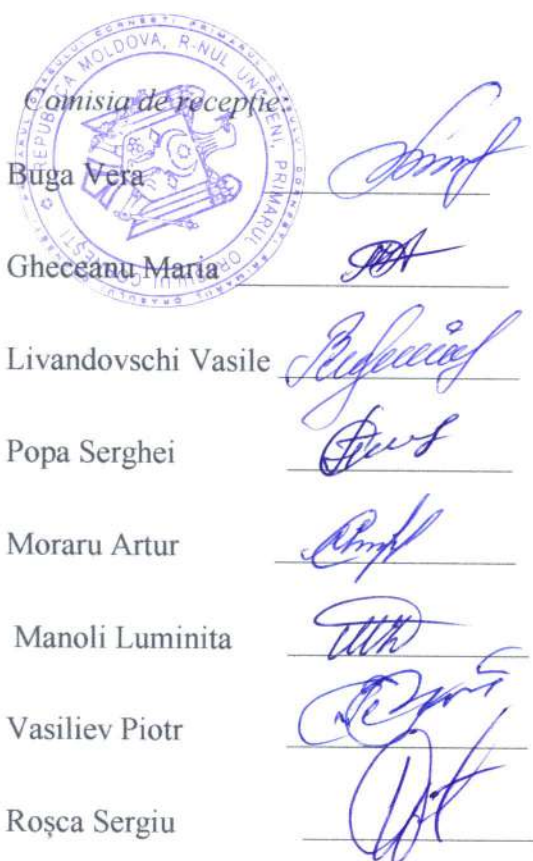 REPUBLICA MOLDOVA, R-NUL UNGHENI, PRIMARUL ORAȘULUI CORNEȘTI
Comisia de recepție:
Buga Vera
Gheceanu Maria
Livandovschi Vasile
Popa Serghei
Moraru Artur
Manoli Luminita
Vasiliev Piotr
Roșca Sergiu